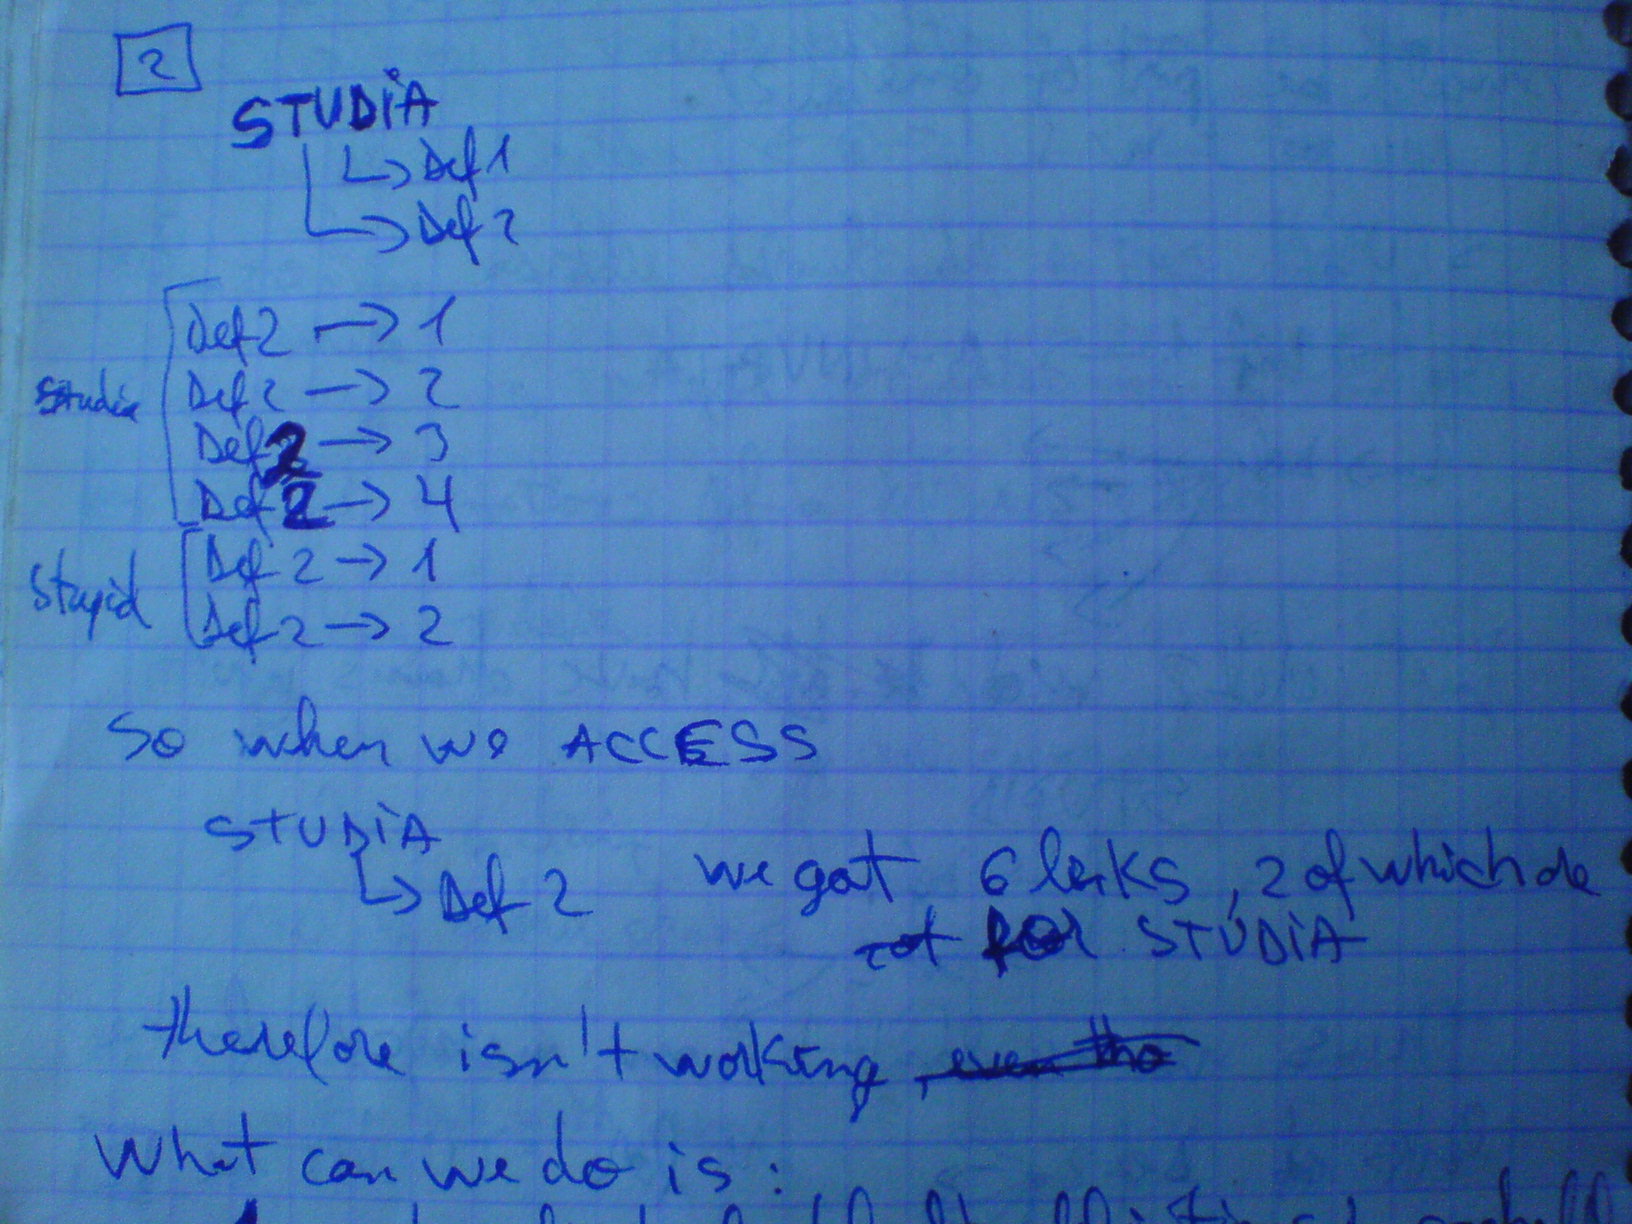 2
STUDiA
↳ Def 1
↳ Def 2
Def 2 → 1
Studia Def 2 → 2
Def 2 → 3
Def 2 → 4
Stupid Def 2 → 1
Def 2 → 2
So when we ACCESS
STUDiA
↳ Def 2 we got 6 links, 2 of which are
not FOR STUDiA
therefore isn't working, even tho
What can we do is: